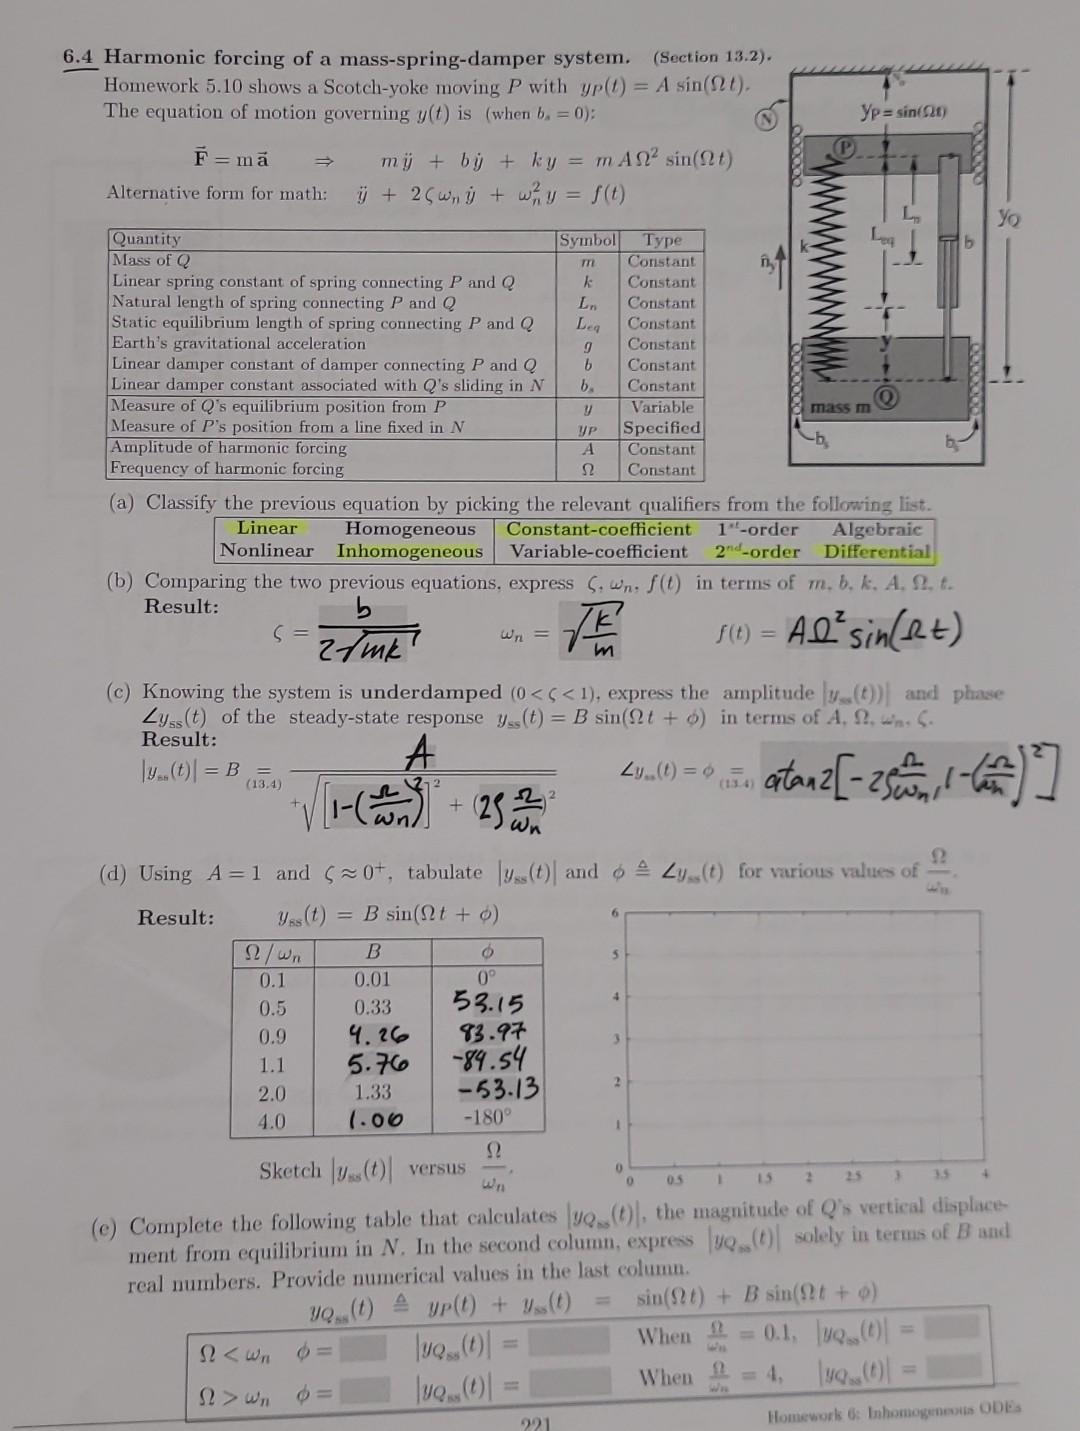 6.4 Harmonic forcing of a mass-spring-damper system. (Section 13.2).
Homework 5.10 shows a Scotch-yoke moving P with y_P(t) = A sin(Ω t).
The equation of motion governing y(t) is (when b_s = 0):
F⃗ = m a⃗ ⇒ m ÿ + b ẏ + k y = m A Ω² sin(Ω t)
Alternative form for math: ÿ + 2 ζ ω_n ẏ + ω_n² y = f(t)
Quantity Symbol Type
Mass of Q m Constant
Linear spring constant of spring connecting P and Q k Constant
Natural length of spring connecting P and Q L_n Constant
Static equilibrium length of spring connecting P and Q L_eq Constant
Earth's gravitational acceleration g Constant
Linear damper constant of damper connecting P and Q b Constant
Linear damper constant associated with Q's sliding in N b_s Constant
Measure of Q's equilibrium position from P y Variable
Measure of P's position from a line fixed in N y_P Specified
Amplitude of harmonic forcing A Constant
Frequency of harmonic forcing Ω Constant
N
N_o
y_P = sin(Ωt)
P
L_n
L_eq
k
b
y_Q
n̂_y
y
mass m
Q
b_s
b_s
(a) Classify the previous equation by picking the relevant qualifiers from the following list.
Linear Homogeneous Constant-coefficient 1st-order Algebraic
Nonlinear Inhomogeneous Variable-coefficient 2nd-order Differential
(b) Comparing the two previous equations, express ζ, ω_n, f(t) in terms of m, b, k, A, Ω, t.
Result:
ζ = b / 2√mk ω_n = √k/m f(t) = AΩ² sin(Ωt)
(c) Knowing the system is underdamped (0 < ζ < 1), express the amplitude |y_ss(t))| and phase
∠y_ss(t) of the steady-state response y_ss(t) = B sin(Ω t + φ) in terms of A, Ω, ω_n, ζ.
Result:
|y_ss(t)| = B =(13.4) A / +√[1-(Ω/ω_n)²]² + (2ζ Ω/ω_n)² ∠y_ss(t) = φ =(13.4) atan2[-2ζ Ω/ω_n, 1-(Ω/ω_n)²]
(d) Using A = 1 and ζ ≈ 0⁺, tabulate |y_ss(t)| and φ ≜ ∠y_ss(t) for various values of Ω/ω_n.
Result: y_ss(t) = B sin(Ω t + φ)
Ω / ω_n B φ
0.1 0.01 0°
0.5 0.33 53.15
0.9 4.26 83.97
1.1 5.76 -89.54
2.0 1.33 -53.13
4.0 1.06 -180°
6
5
4
3
2
1
0
0 0.5 1 1.5 2 2.5 3 3.5 4
Sketch |y_ss(t)| versus Ω/ω_n.
(e) Complete the following table that calculates |y_Qss(t)|, the magnitude of Q's vertical displace-
ment from equilibrium in N. In the second column, express |y_Qss(t)| solely in terms of B and
real numbers. Provide numerical values in the last column.
y_Qss(t) ≜ y_P(t) + y_ss(t) = sin(Ω t) + B sin(Ω t + φ)
Ω < ω_n φ = |y_Qss(t)| = When Ω/ω_n = 0.1, |y_Qss(t)| =
Ω > ω_n φ = |y_Qss(t)| = When Ω/ω_n = 4, |y_Qss(t)| =
221
Homework 6: Inhomogeneous ODEs